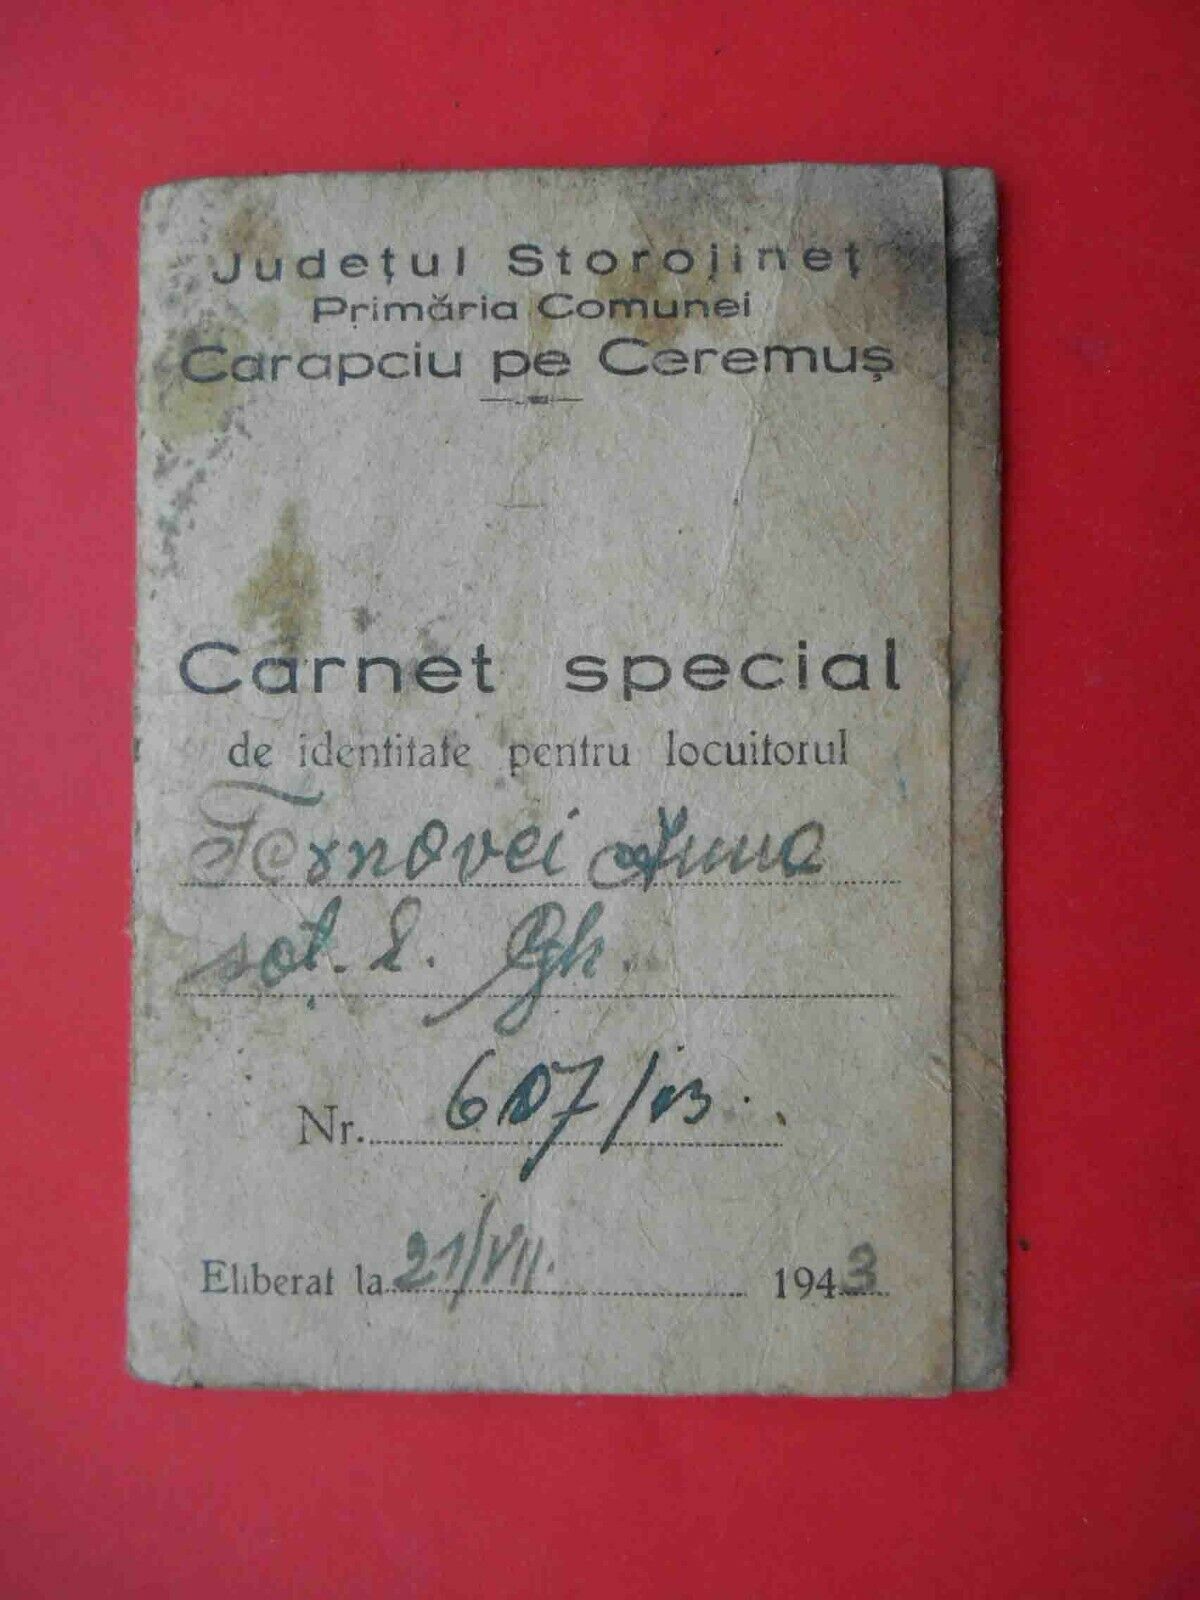 Județul Storojineț
Primăria Comunei
Carapciu pe Ceremuș
Carnet special
de identitate pentru locuitorul
Ternovei Anna
soț. l. Gh.
Nr. 607/943
Eliberat la 21/VII. 1943